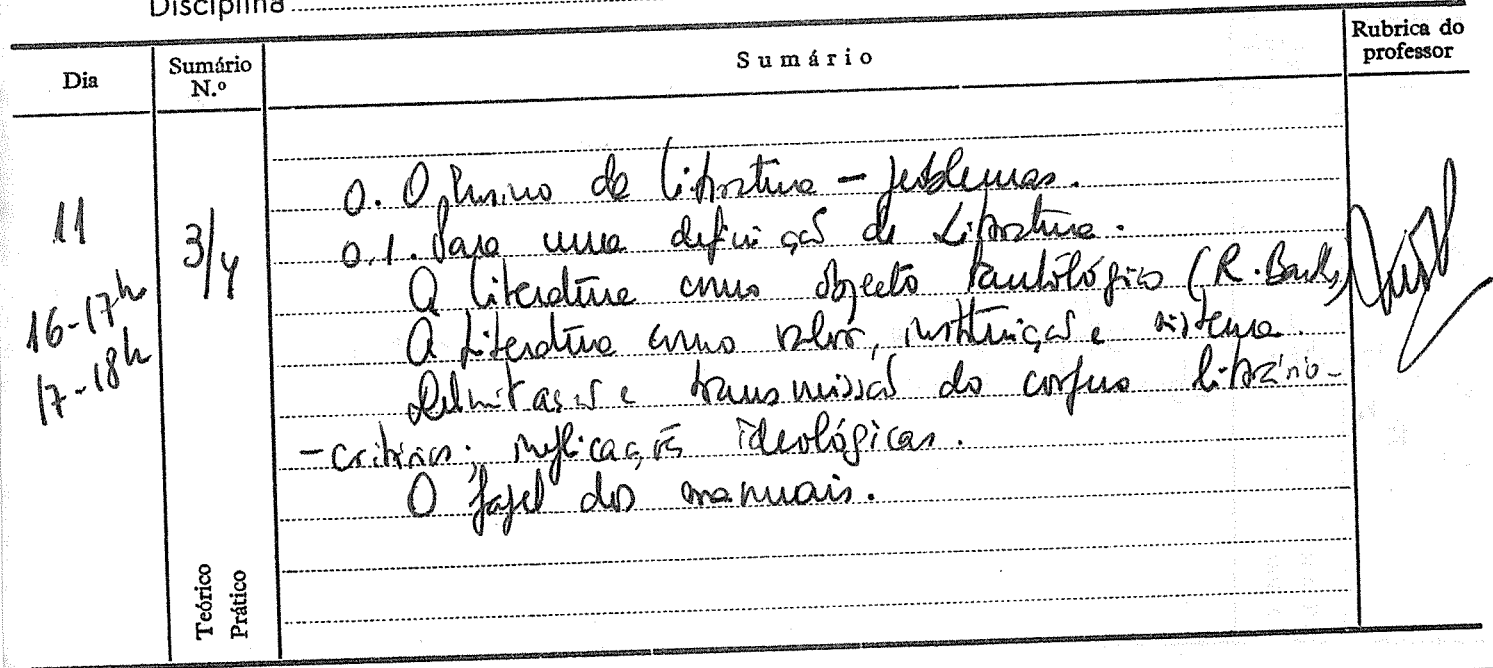 Disciplina
Dia
Sumário N.º
Sumário
Rubrica do professor
11
16-17h
17-18h
3/4
0. O Ensino da Literatura - problemas.
0.1. Para uma definição de Literatura.
A Literatura como objecto tautológico (R. Barthes)
A Literatura como valor, instituição e sistema.
Delimitação e transmissão do corpus literário-
-crítico; implicações ideológicas.
O papel dos manuais.
Teórico
Prático